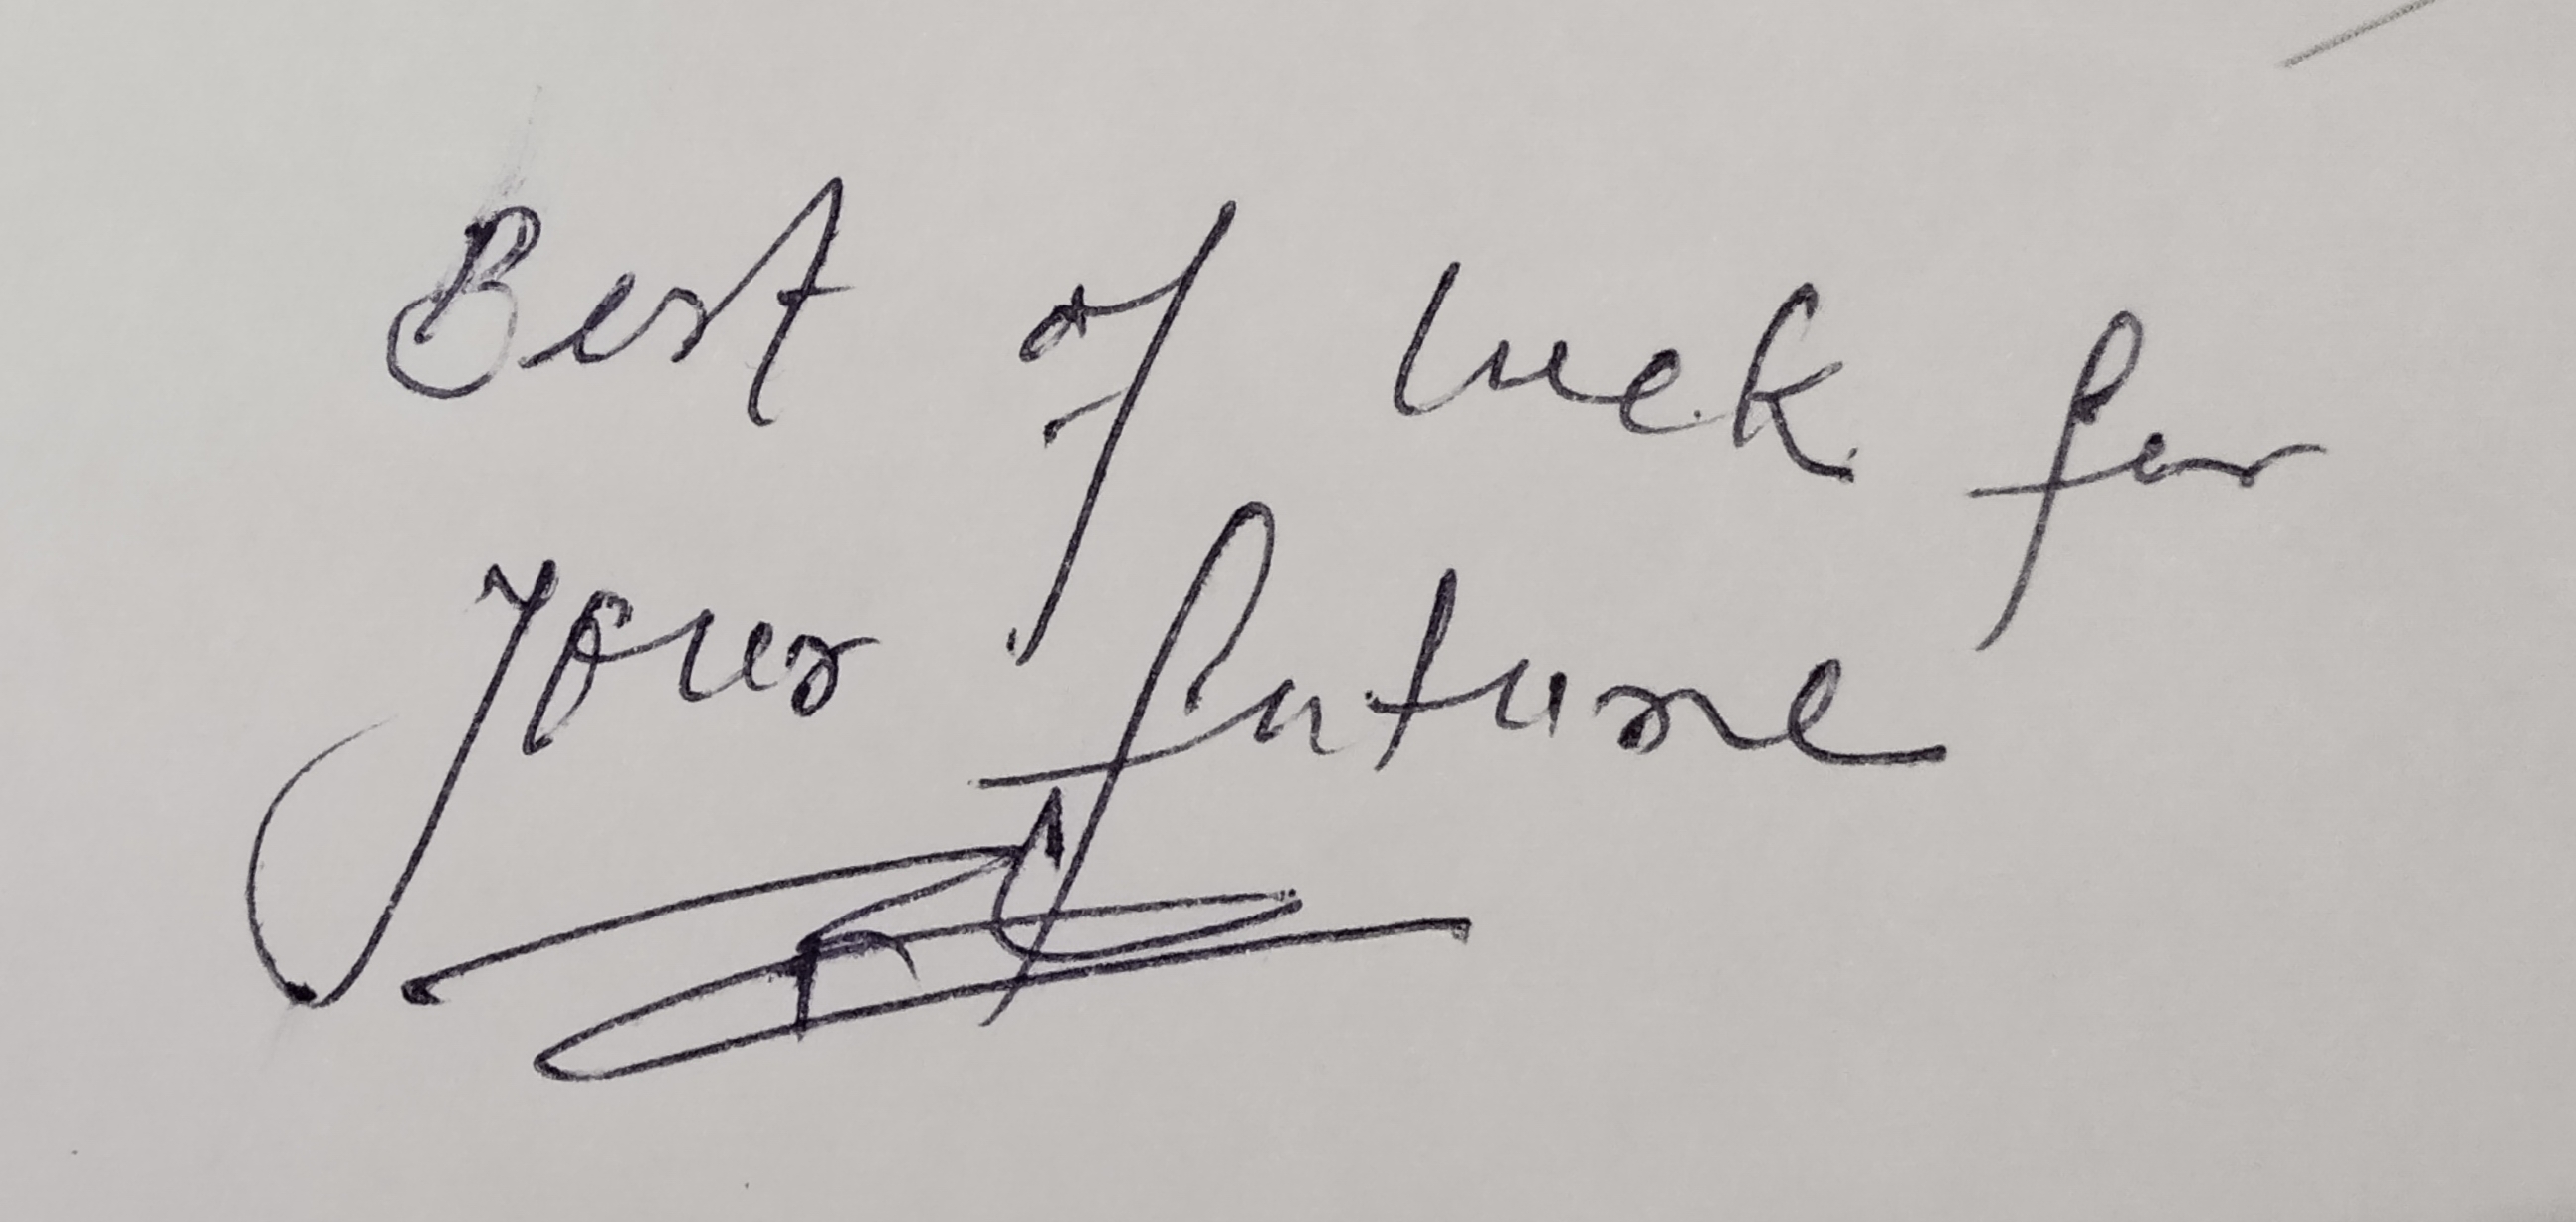 Best of luck for
your future